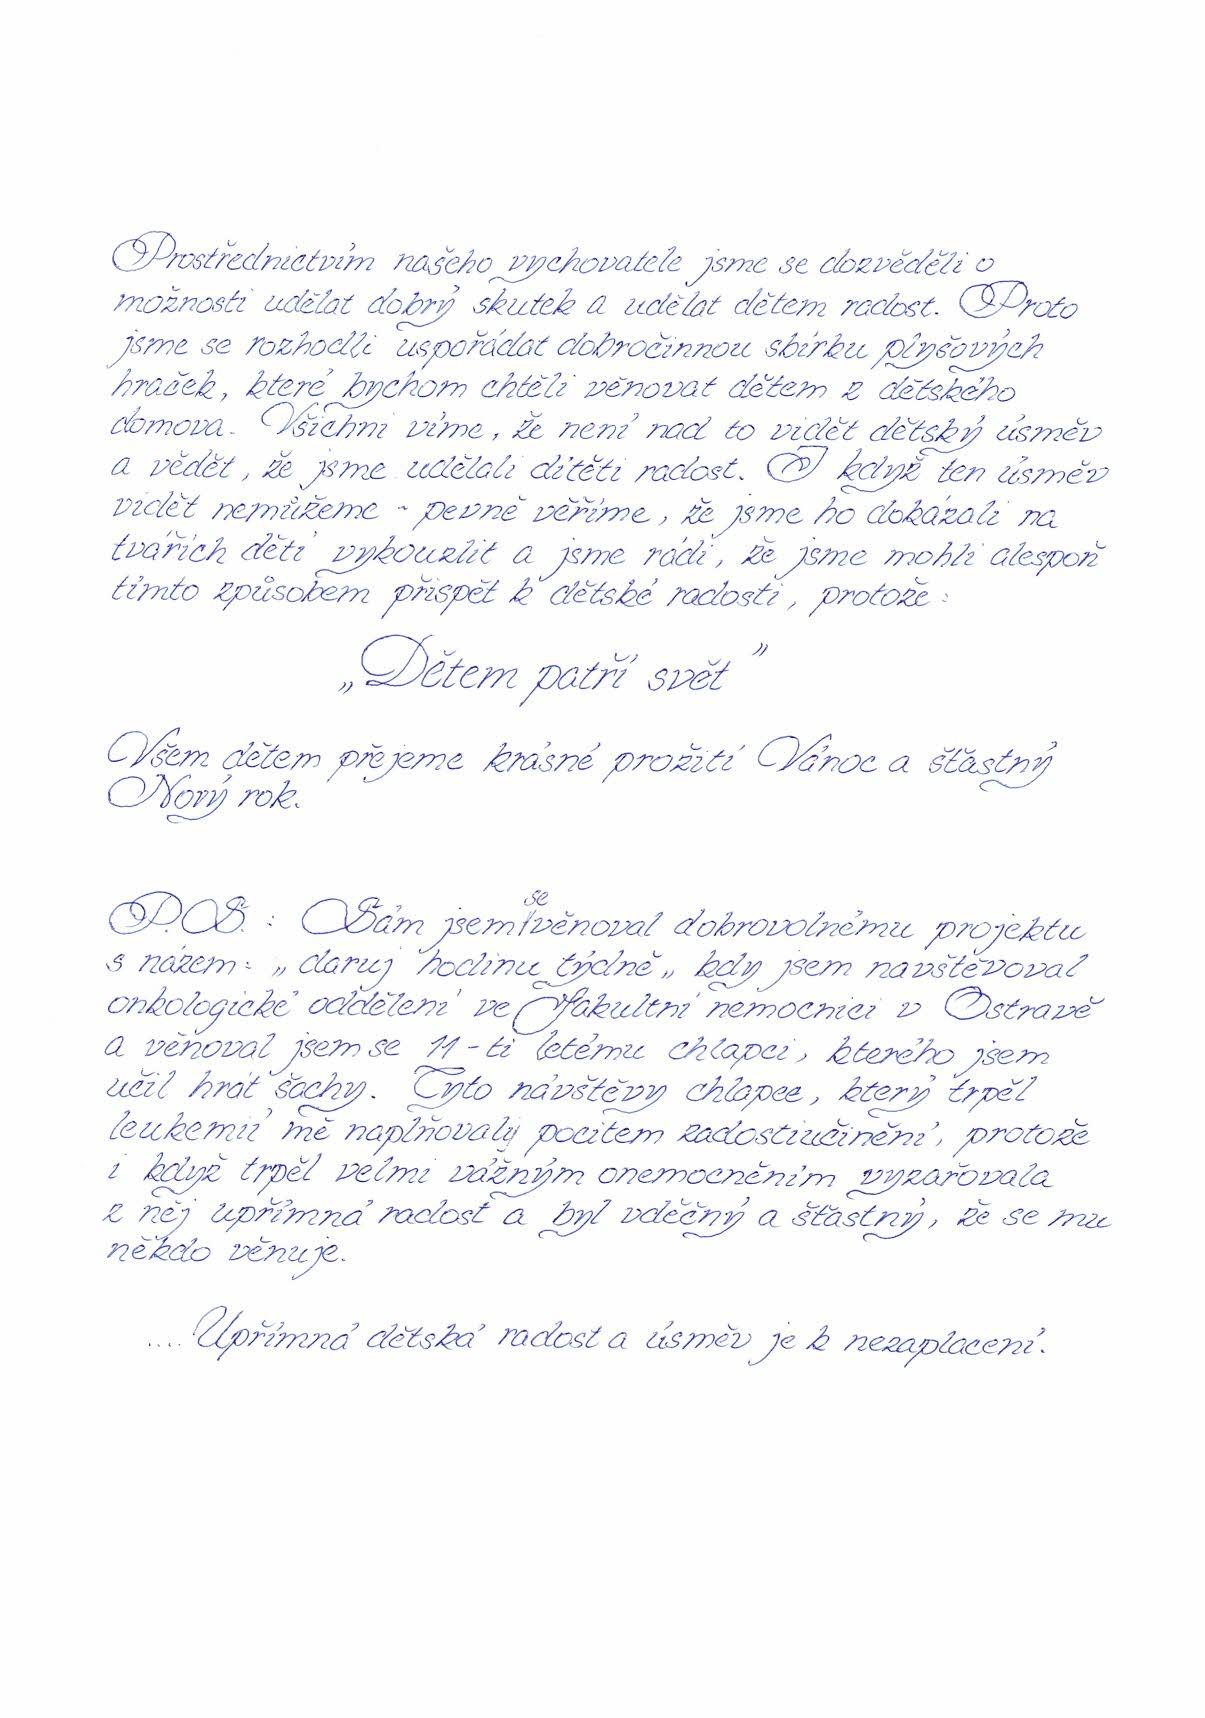 Prostřednictvím našeho vychovatele jsme se dozvěděli o
možnosti udělat dobrý skutek a udělat dětem radost. Proto
jsme se rozhodli uspořádat dobročinnou sbírku plyšových
hraček, které bychom chtěli věnovat dětem z dětského
domova. Všichni víme, že není nad to vidět dětský úsměv
a vědět, že jsme udělali dítěti radost. I když ten úsměv
vidět nemůžeme - pevně věříme, že jsme ho dokázali na
tvářích dětí vykouzlit a jsme rádi, že jsme mohli alespoň
tímto způsobem přispět k dětské radosti, protože:
„Dětem patří svět"
Všem dětem přejeme krásné prožití Vánoc a šťastný
Nový rok.
P.S.: Sám jsem se věnoval dobrovolnému projektu
s názem: „daruj hodinu týdně„ kdy jsem navštěvoval
onkologické oddělení ve Fakultní nemocnici v Ostravě
a věnoval jsem se 11-ti letému chlapci, kterého jsem
učil hrát šachy. Tyto návštěvy chlapce, který trpěl
leukemií mě naplňovaly pocitem zadostiučinění, protože
i když trpěl velmi vážným onemocněním vyzařovala
z něj upřímná radost a byl vděčný a šťastný, že se mu
někdo věnuje.
.... Upřímná dětská radost a úsměv je k nezaplacení.